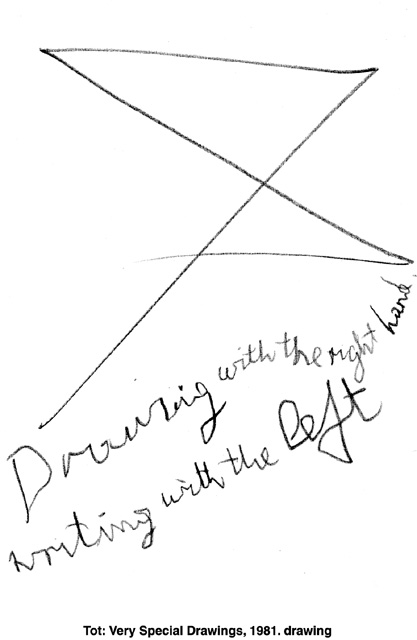 Drawing with the right hand.
writing with the left
Tot: Very Special Drawings, 1981. drawing